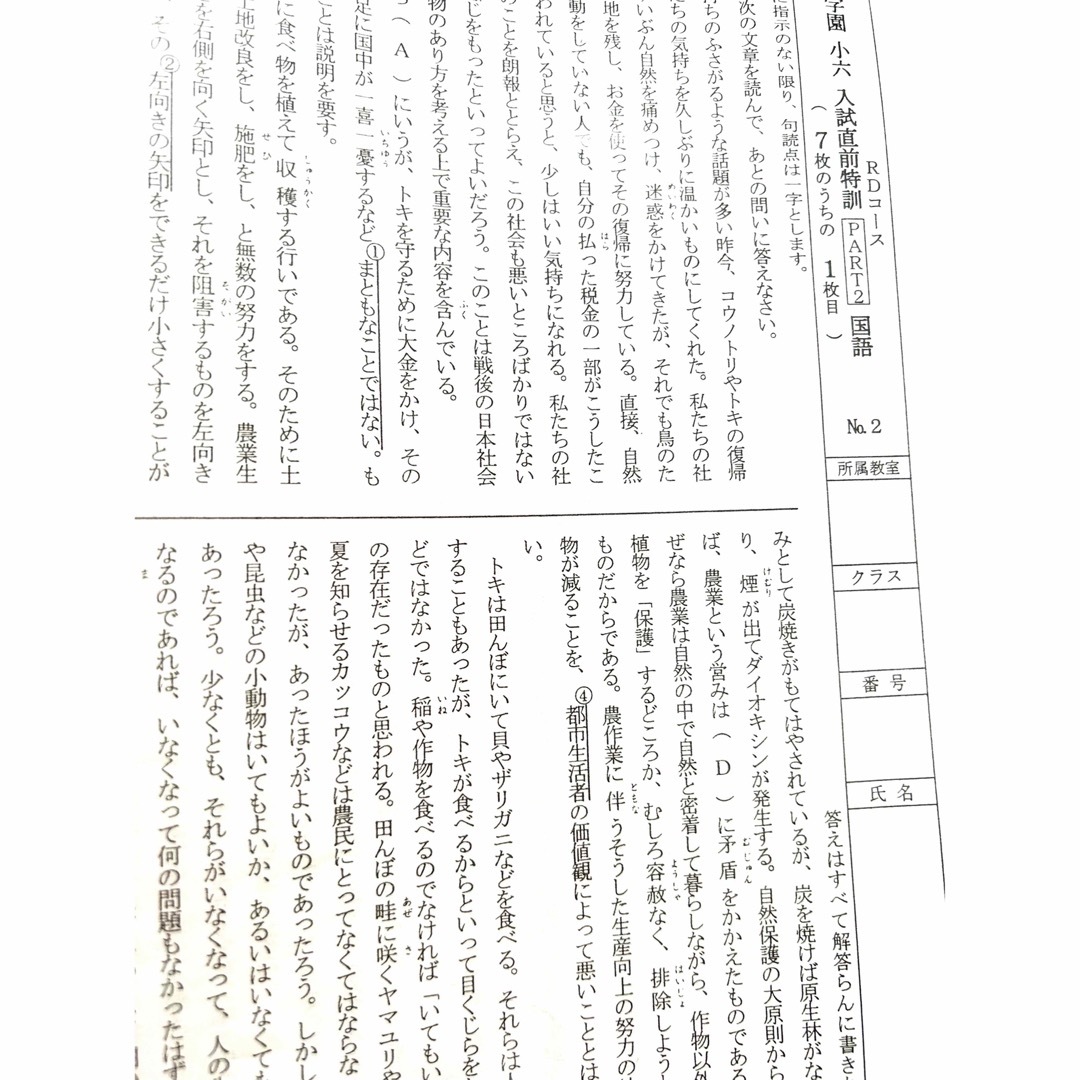 RDコース
学園 小六 入試直前特訓 PART2 国語 No.2
( 7枚のうちの 1枚目 )
所属教室
クラス
番号
氏名
答えはすべて解答らんに書き
に指示のない限り、句読点は一字とします。
次の文章を読んで、あとの問いに答えなさい。
ちのふさがるような話題が多い昨今、コウノトリやトキの復帰
たちの気持ちを久しぶりに温かいものにしてくれた。私たちの社
いぶん自然を痛めつけ、迷惑をかけてきたが、それでも鳥のた
地を残し、お金を使ってその復帰に努力している。直接、自然
動をしていない人でも、自分の払った税金の一部がこうしたこ
われていると思うと、少しはいい気持ちになれる。私たちの社
のことを朗報ととらえ、この社会も悪いところばかりではない
じをもったといってよいだろう。このことは戦後の日本社会
物のあり方を考える上で重要な内容を含んでいる。
( A ) にいうが、トキを守るために大金をかけ、その
足に国中が一喜一憂するなど①まともなことではない。も
ことは説明を要す。
に食べ物を植えて収穫する行いである。そのために土
土地改良をし、施肥をし、と無数の努力をする。農業生
を右側を向く矢印とし、それを阻害するものを左向き
その②左向きの矢印をできるだけ小さくすることが
みとして炭焼きがもてはやされているが、炭を焼けば原生林がな
り、煙が出てダイオキシンが発生する。自然保護の大原則から
ば、農業という営みは ( D ) に矛盾をかかえたものである
ぜなら農業は自然の中で自然と密着して暮らしながら、作物以外
植物を「保護」するどころか、むしろ容赦なく、排除しよう
ものだからである。農作業に伴うそうした生産向上の努力の
物が減ることを、④都市生活者の価値観によって悪いこととは
い。
トキは田んぼにいて貝やザリガニなどを食べる。それらは
することもあったが、トキが食べるからといって目くじらを
どではなかった。稲や作物を食べるのでなければ「いてもい
の存在だったものと思われる。田んぼの畦に咲くヤマユリや
夏を知らせるカッコウなどは農民にとってなくてはならな
なかったが、あったほうがよいものであったろう。しかし
や昆虫などの小動物はいてもよいか、あるいはいなくても
あったろう。少なくとも、それらがいなくなって、人の
なるのであれば、いなくなって何の問題もなかったはず